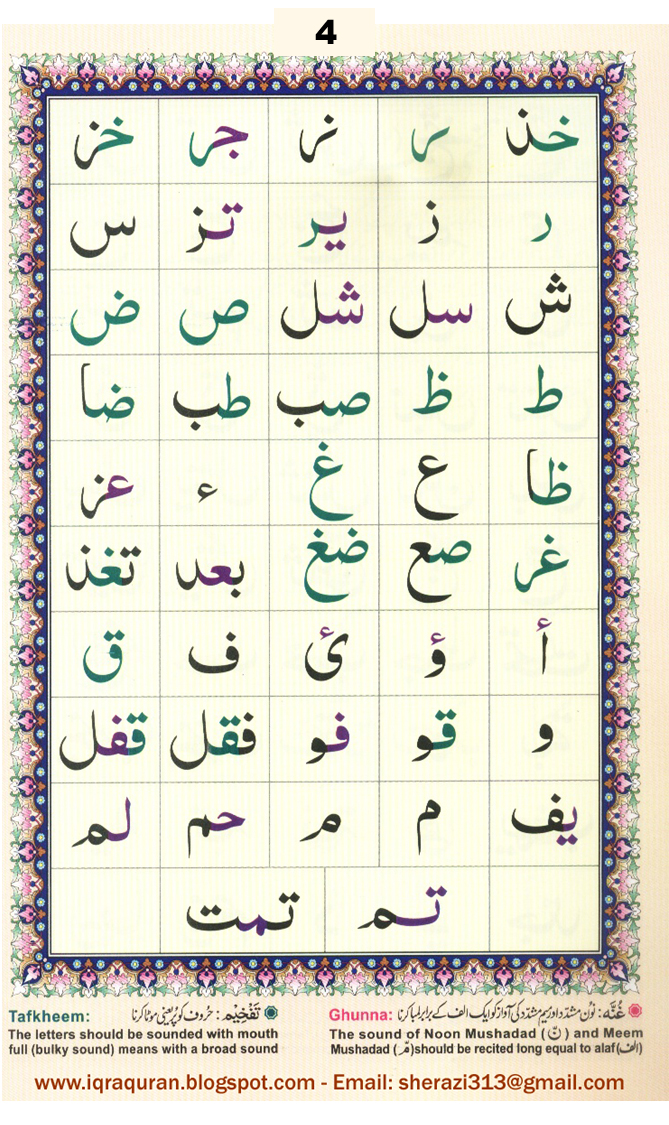 4
خذ ر نر جر خز
ر ز یر تز س
ش سل شل ص ض
ط ظ صب طب ضا
ظا ع غ ء عز
غر صع ضغ بعد تغذ
أ ؤ ئ ف ق
و قو فو فقل قفل
یف م م حم لم
تم تمت
Ghunna: غُنَّه: نُون مشدّد اور میم مشدّد کی آواز کو ایک الف کے برابر لمبا کرنا
The sound of Noon Mushadad (نّ) and Meem
Mushadad (مّ) should be recited long equal to alaf (الف)
Tafkheem: تَفْخِیْم: حُروف کو پُر یعنی موٹا کرنا
The letters should be sounded with mouth
full (bulky sound) means with a broad sound
www.iqraquran.blogspot.com - Email: sherazi313@gmail.com